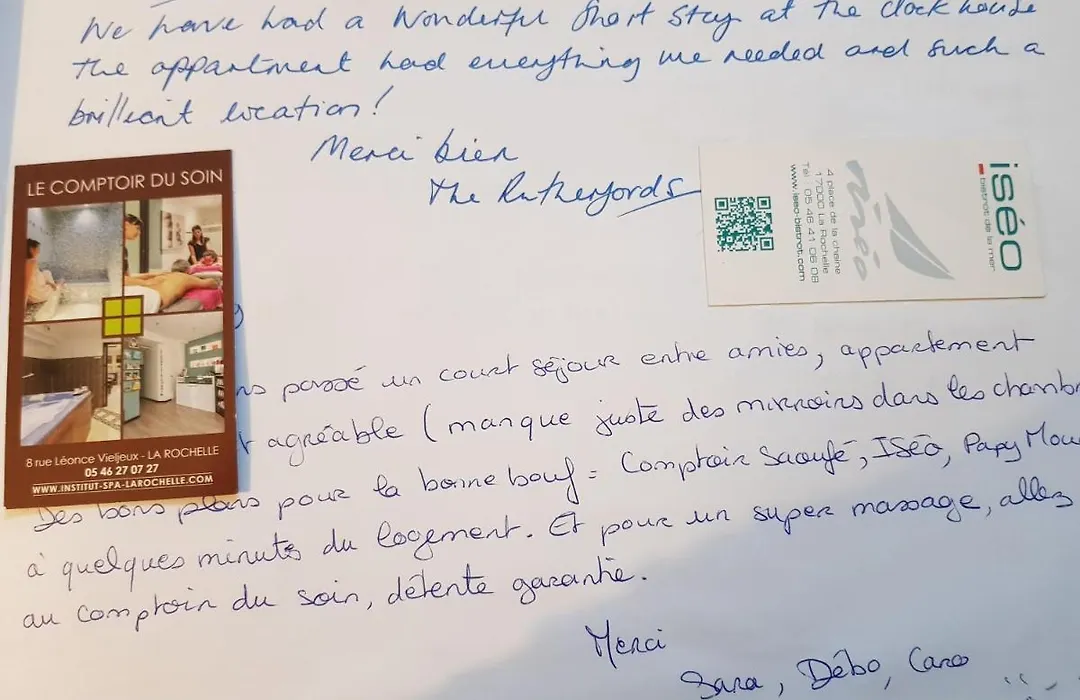 We have had a wonderful short stay at the clock house
the appartment had everything we needed and such a
brilliant location!
Merci bien
The Rutherfords
LE COMPTOIR DU SOIN
8 rue Léonce Vieljeux - LA ROCHELLE
05 46 27 07 27
WWW.INSTITUT-SPA-LAROCHELLE.COM
iséo
bistrot de la mer
iséo
4 place de la chaine
17000 La Rochelle
Tél 05 46 41 06 08
www.iseo-bistrot.com
passé un court séjour entre amies, appartement
agréable (manque juste des mirroirs dans les chamb
Des bons plans pour la bonne bouf = Comptoir Saoufé, ISéo, Papy Mou
à quelques minutes du logement. Et pour un super massage, allez
au comptoir du soin, détente garantie.
Merci
Sara, Débo, Caro